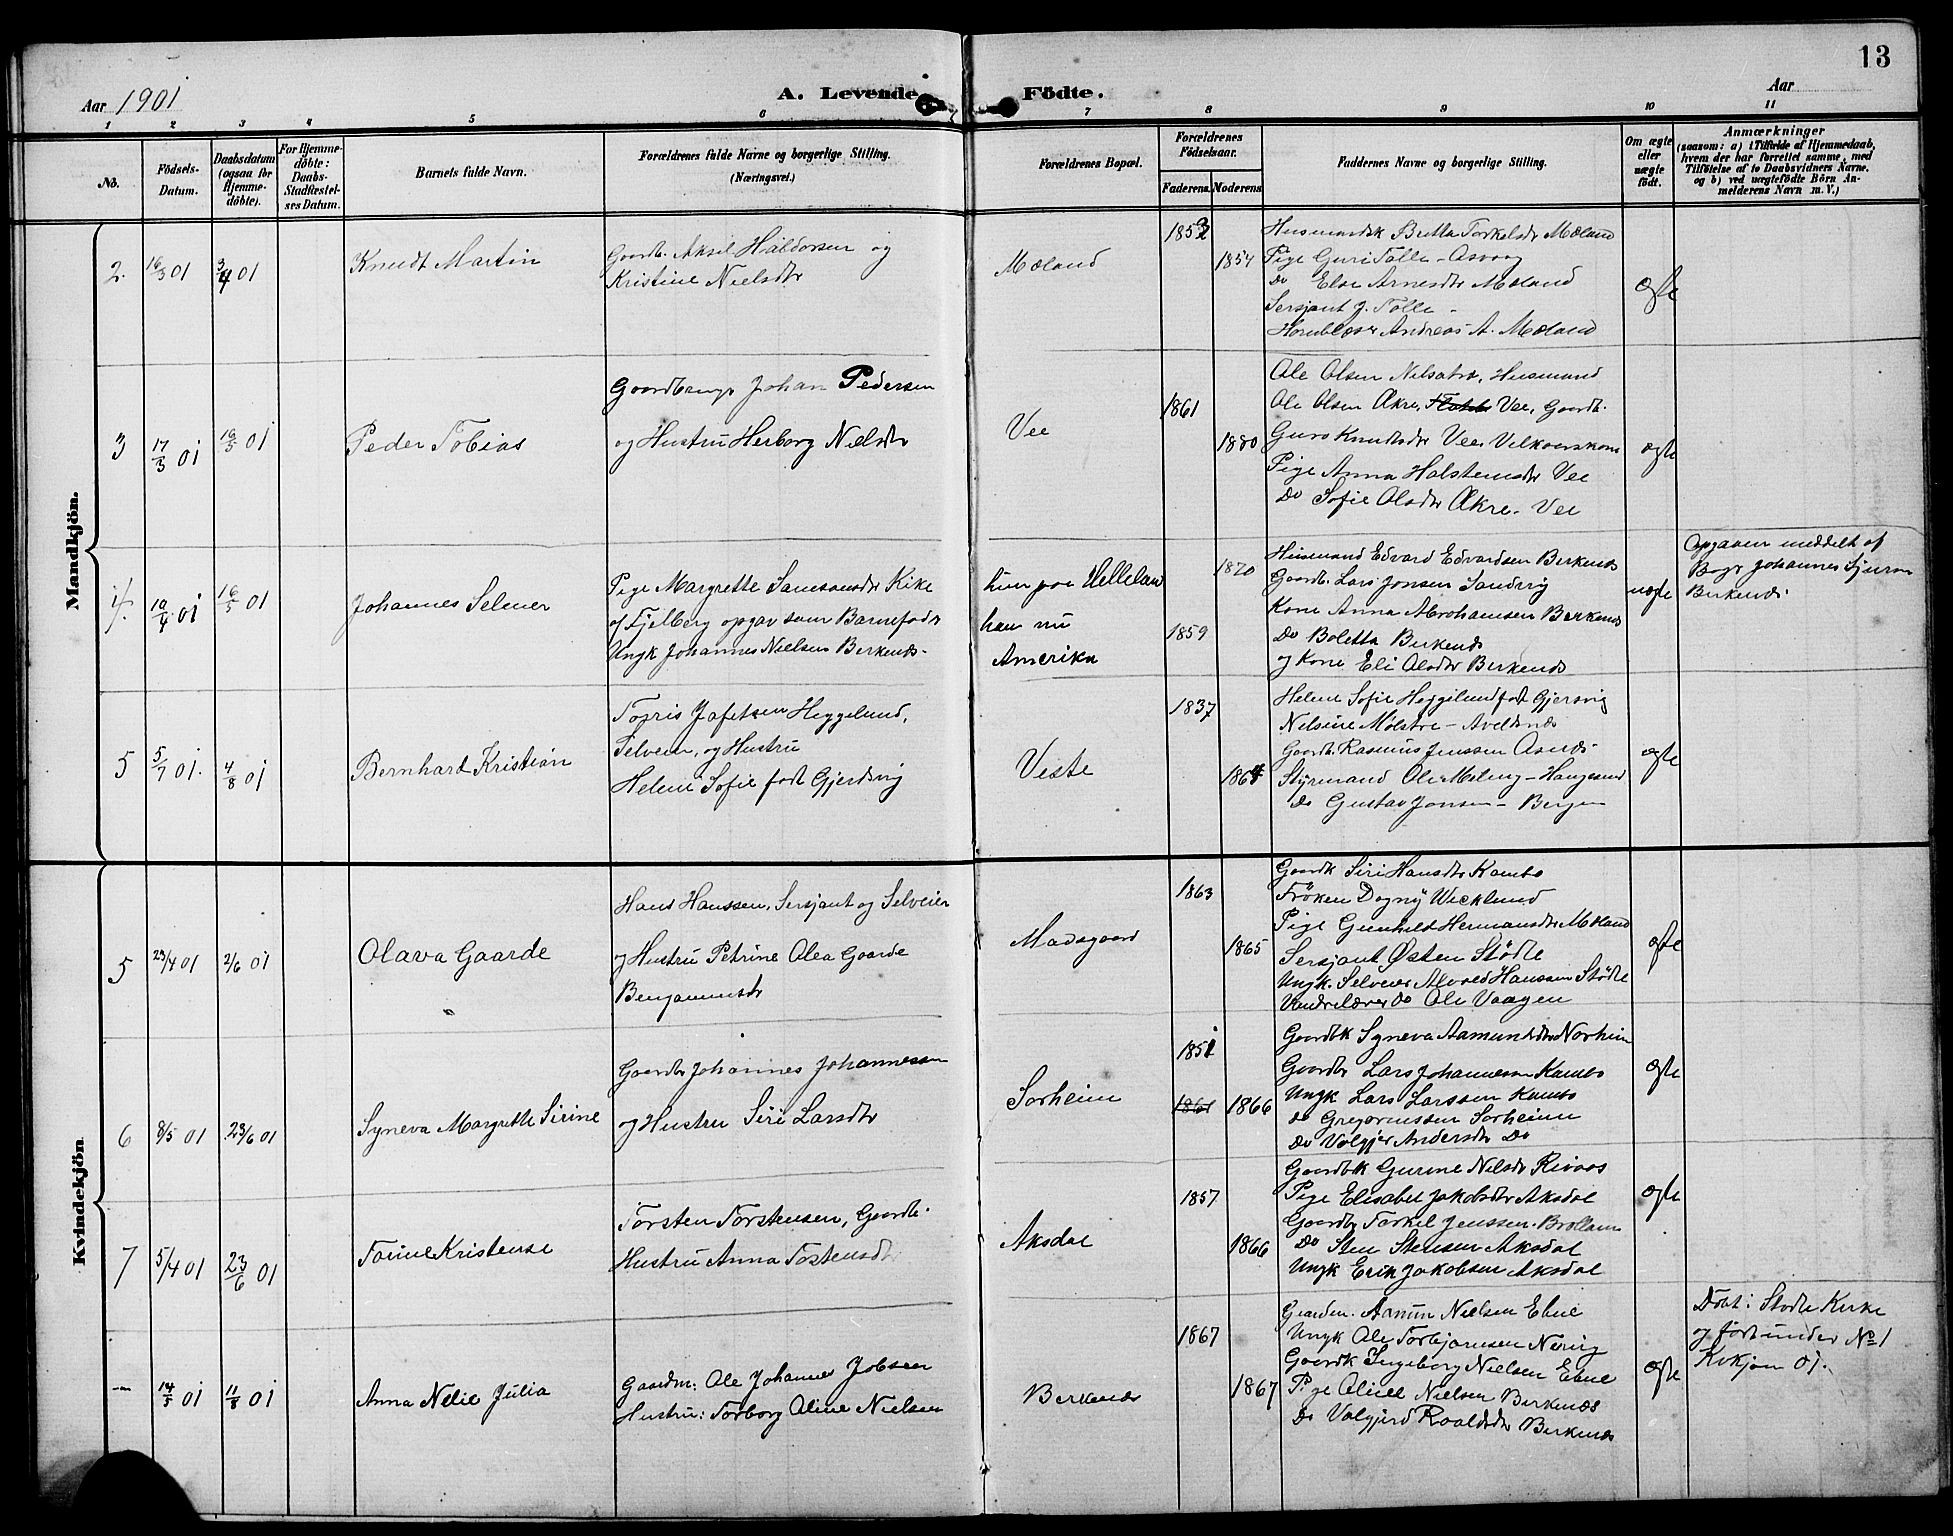 13
Aar 1901
A. Levende Födte.
Aar
1 2 3 4 5 6 7 8 9 10 11
No.
Födsels-Datum.
Daabsdatum (ogsaa for Hjemme-döbte).
For Hjemme-döbte: Daabs-Stadfæstel-ses Datum.
Barnets fulde Navn.
Forældrenes fulde Navne og borgerlige Stilling.
(Næringsvei.)
Forældrenes Bopæl.
Forældrenes Födselsaar.
Faderens. Moderens.
Faddernes Navne og borgerlige Stilling.
Om ægte eller uægte födt.
Anmærkninger
(saasom: a) i Tilfælde af Hjemmedaab, hvem der har forrettet samme, med Tilföielse af to Daabsvidners Navne. og b) ved uægtefödte Börn An-melderens Navn m. V.)
Mandkjön.
2. 16/3 01 3/4 01
Knudt Martin
Gaardb. Aksil Haldorsen og
Kristine Nielsdtr
Mæland
1852
1854
Husmandsk Britta Torkelsdr Mæland
Pige Guri Tolle - Asvaag
Do Else Arnesdtr Mæland
Sersjant J. Tolle -
Hornblæser Andreas A. Mæland
ægte
3 17/3 01 16/5 01
Peder Tobias
Gaardbruger Johan Pedersen
og Hustru Herborg Nielsdtr
Vee
1861
1880
Ole Olsen Nilsatre, Husmand
Ole Olsen Ækre, Vee, Gaardb.
Guro Knudtsdtr Vee
Pige Anna Holstensdtr Vee
Do Sofie Olsdtr Ækre. Vee
ægte
4. 19/4 01 16/5 01
Johannes Selmer
Pige Margrethe Samsonsdtr Kike
af Fjelberg opgav som Barnefader
Ungk Johannes Nielsen Berkenes.
hun paa Helleland
han nu
Amerika
1870
1859
Husmand Edvard Edvardsen Birkenes
Gaardb. Lars Jonsen Sandvig
Kone Anna Abrahamsen Berkenes
Do Boletta Berkenes
og Kone Eli Olsdtr Berkenes
uægte
Opgaven meddelt af
Johannes
Birkenes.
5 5/7 01. 4/8 01
Bernhard Kristian
Tøgris Jafetsen Heggelund,
Selveier, og Hustru
Helene Sofie født Gjerdsvig
Veste
1837
1864
Helene Sofie Heggelund født Gjersvig
Nelsine Mølstre - Aveldsnes
Gaardb. Rasmus Jenssen Asnes.
Styrmand Ole Meling - Haugesund
Do Gustav Jonsen - Bergen
ægte
Kvindekjön
5 23/4 01 2/6 01
Olava Gaarde
"
Hans Hanssen, Sersjant og Selveier
og Hustru Petrine Olea Gaarde
Benjaminsdr
Madsgaard
1863
1865
Gaardk Siri Hansdtr Kambo
Frøken Dagny Wicklund
Pige Gunhild Hermansdtr Mæland
Sersjant Østen Stødle
Ungk. Selveier Alvred Hanssen Stødle
Do Ole Vaagen
ægte
6 8/5 01 23/6 01
Syneva Margrethe Sirine
Gaardbr Johannes Johannessen
og Hustru Siri Larsdtr
Sørheim
1851
1861 1866
Gaardbk Syneva Aamundsdtr Norheim
Gaardbr Lars Johannesen Kambo
Ungk Lars Larssen Kambo
do Gregoriussen Sørheim
Do Valgjer Andersdtr Do
ægte
7 5/4 01 23/6 01
Torine Kristense
Torsten Torstensen, Gaardb.
Hustru Anna Torstensdt
Aksdal
1857
1866
Gaardbk Gurine Nelsdr Rivaas
Pige Elisabet Jakobsdtr Aksdal
Gaardbr Torkel Jenssen
Do Sten Stensen Aksdal
Ungk Erik Jakobsen Aksdal
ægte
- 14/5 01 11/8 01
Anna Nelie Julia
Gaardm: Ole Johannes Jobsen
Hustru: Torborg Oline Nielsen
Berkenæs
1867
1867
Gaardm. Amun Nielsen Ebne
Ungk Ole Torbjørnsen Nærig
Gaardk Ingeborg Nielsen Ebne
Pige Oline Nielsen Berkenæs
Do Valgjerd Roaldsdtr Berkenæs
ægte
Døbt i Stødle Kirke
og ført under No 1
Kvkjøn 01.